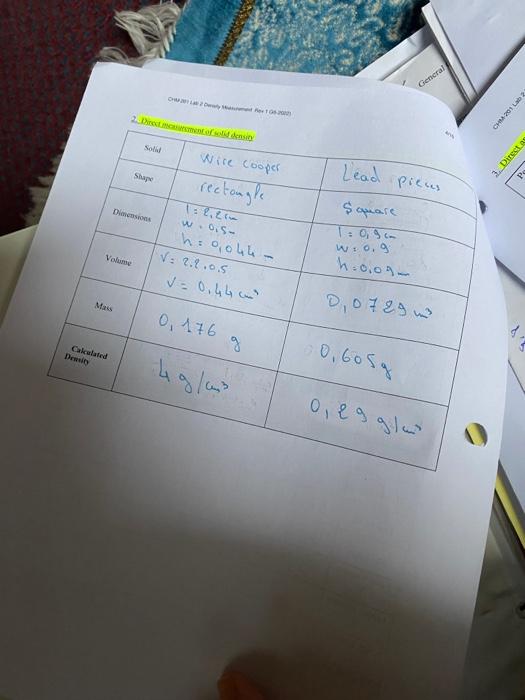 General
CHM 201 Lab 2
CHM 201 Lab 2 Density Measurement Rev 1 G6-2022)
4/10
2. Direct measurement of solid density
3. Direct
Solid
Wire cooper
Lead pieces
Shape
rectangle
Square
Dimensions
l = 2,2 cm
w = 0,5
h = 0,044
l = 0,9
w = 0,9
h = 0,09
Volume
V = 2.2.0.5
V = 0,44 cm³
0,0729 m³
Mass
0,176 g
0,605g
Calculated
Density
4 g/cm³
0,29 g/cm³